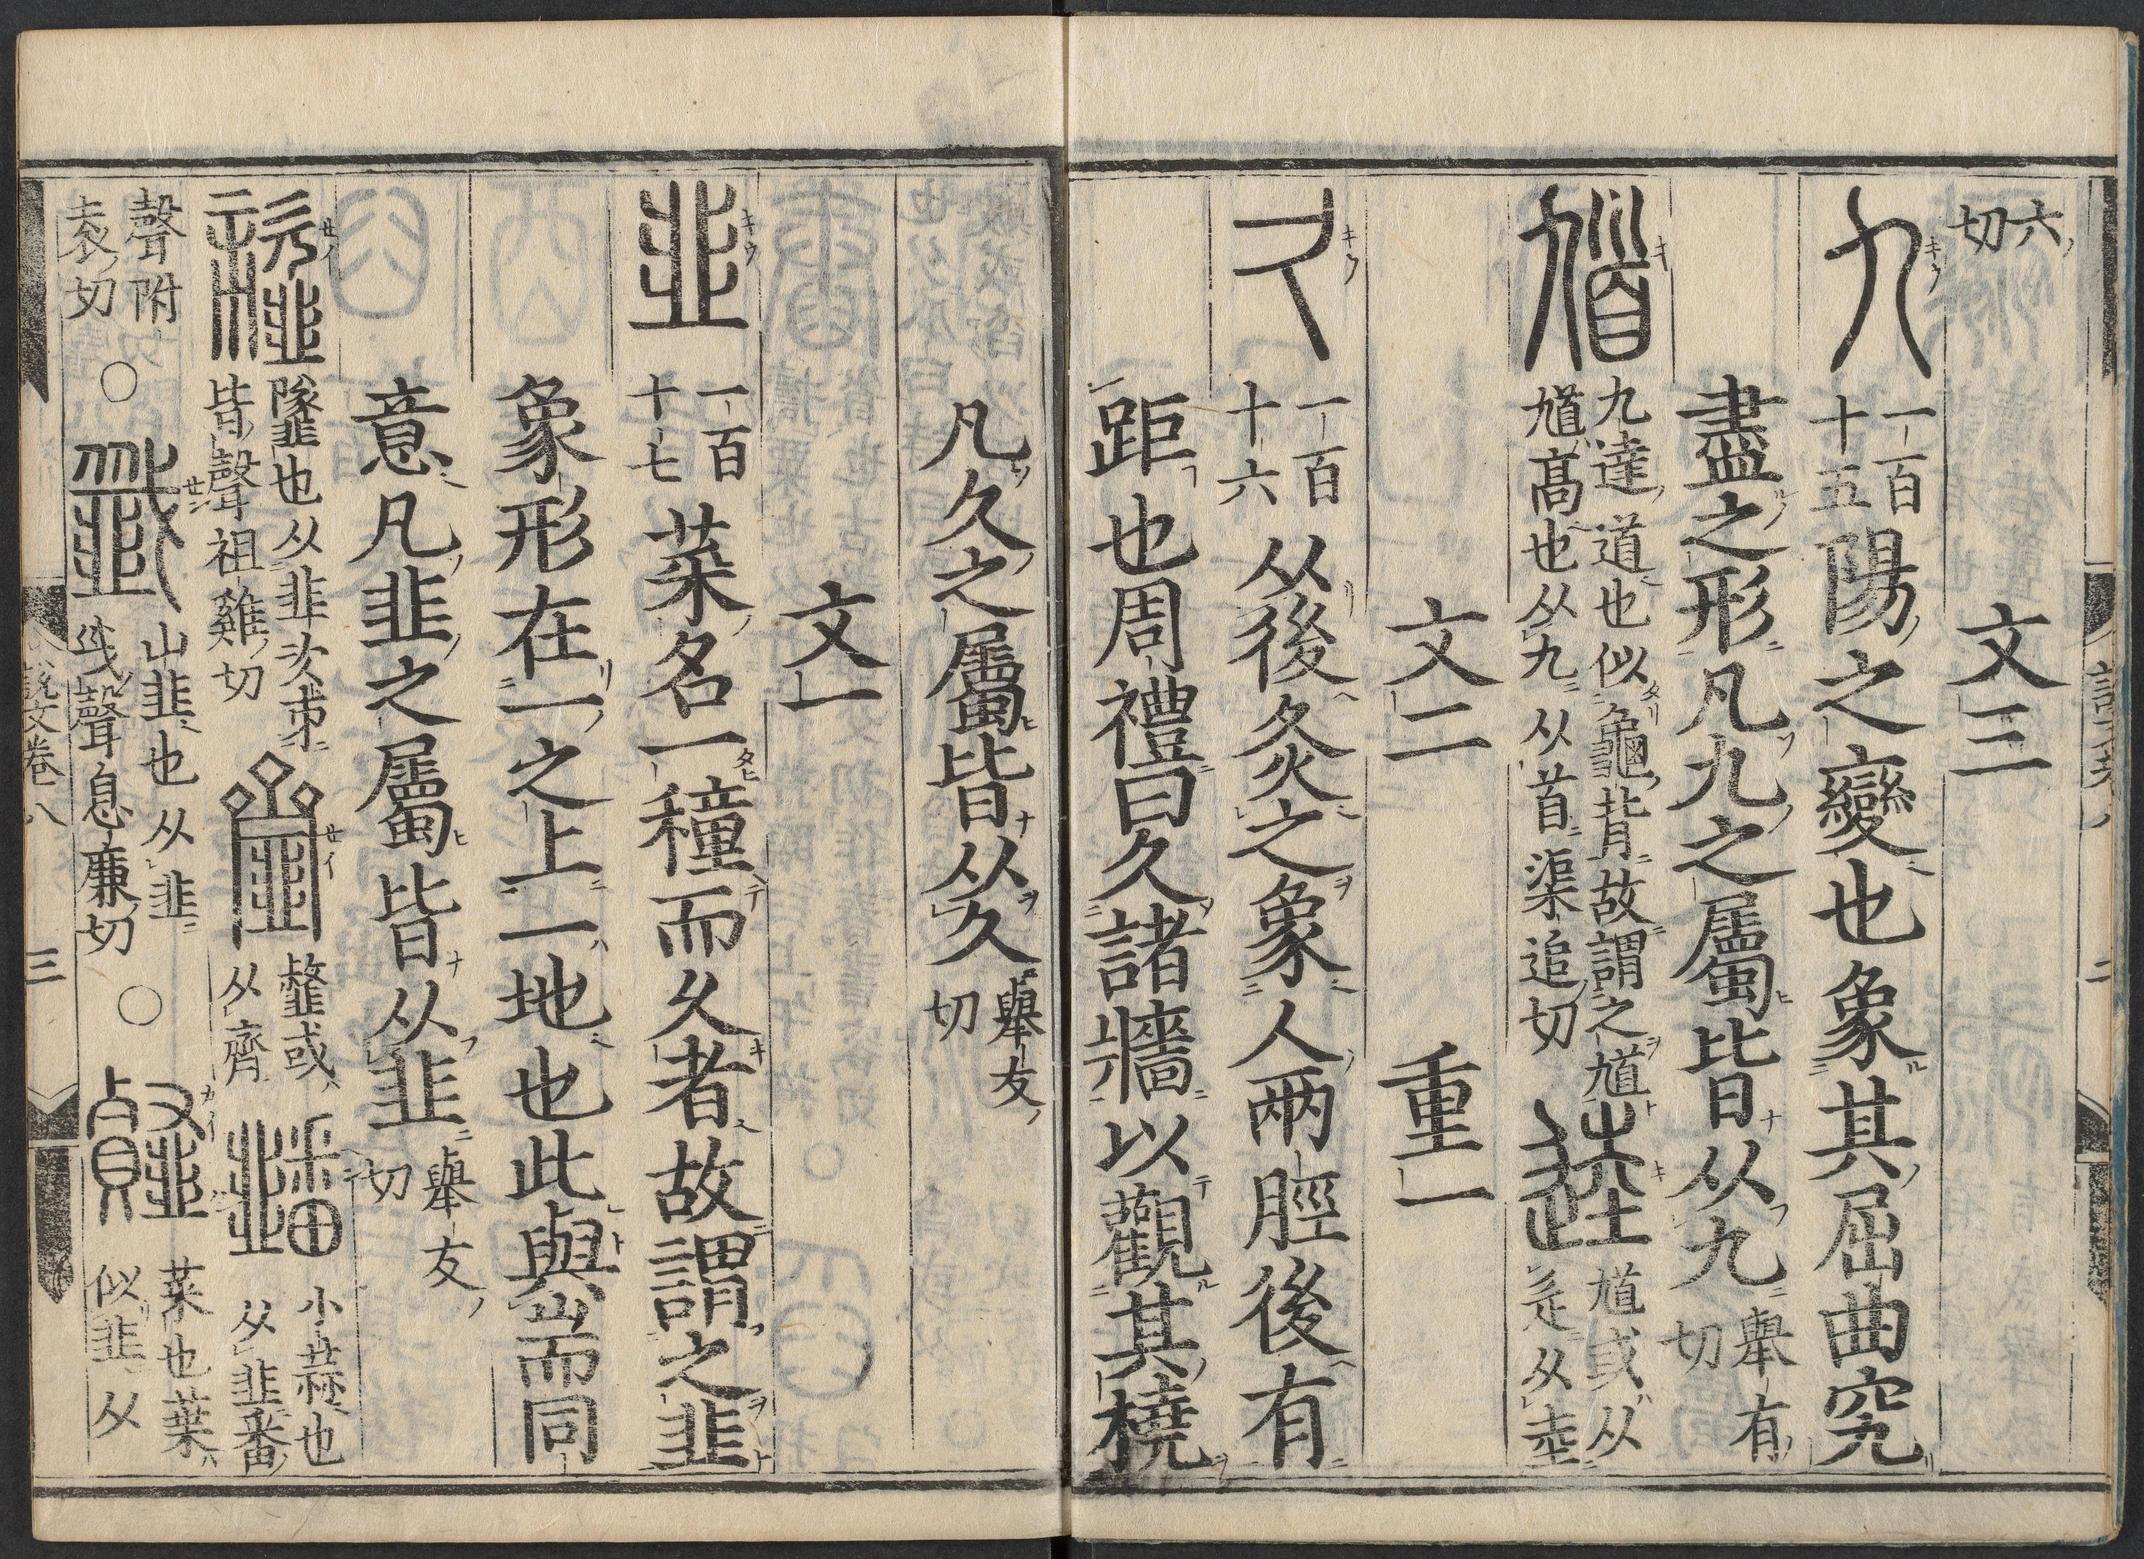 六切
文三
九 一百十五 陽之變也象其屈曲究
盡之形凡九之屬皆从九 舉有切
馗 九達道也似龜背故謂之馗馗高也从九从首渠追切 逵 馗或从辵从坴
文二 重一
久 一百十六 从後灸之象人兩脛後有
距也周禮曰久諸牆以觀其橈
凡久之屬皆从久 舉友切
文一
韭 一百十七 菜名一種而久者故謂之韭
象形在一之上一地也此與耑而同
意凡韭之屬皆从韭 舉友切
䪡也从韭次𠂔皆聲祖雞切 齏 䪢或从齊 小蒜也从韭番
聲附袁切 ○ 韱 山韭也从韭㦰聲息廉切 ○ 菜也葉似韭从
說文卷八 三